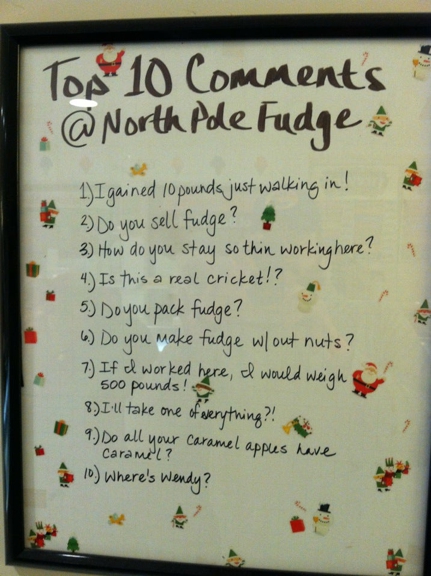 Top 10 Comments
@ North Pole Fudge
1.) I gained 10 pounds just walking in!
2.) Do you sell fudge?
3.) How do you stay so thin working here?
4.) Is this a real cricket!?
5.) Do you pack fudge?
6.) Do you make fudge w/out nuts?
7.) If I worked here, I would weigh
500 pounds!
8.) I'll take one of everything?!
9.) Do all your caramel apples have
caramel?
10.) Where's Wendy?